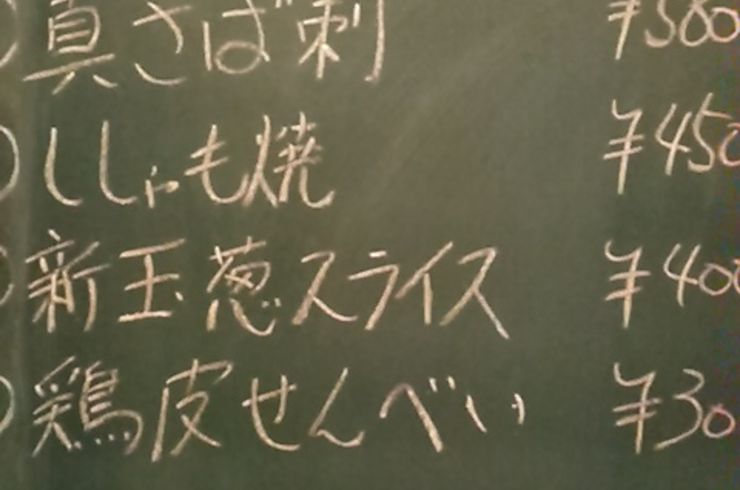 真さば刺 ¥580
ししゃも焼 ¥450
新玉葱スライス ¥400
鶏皮せんべい ¥30